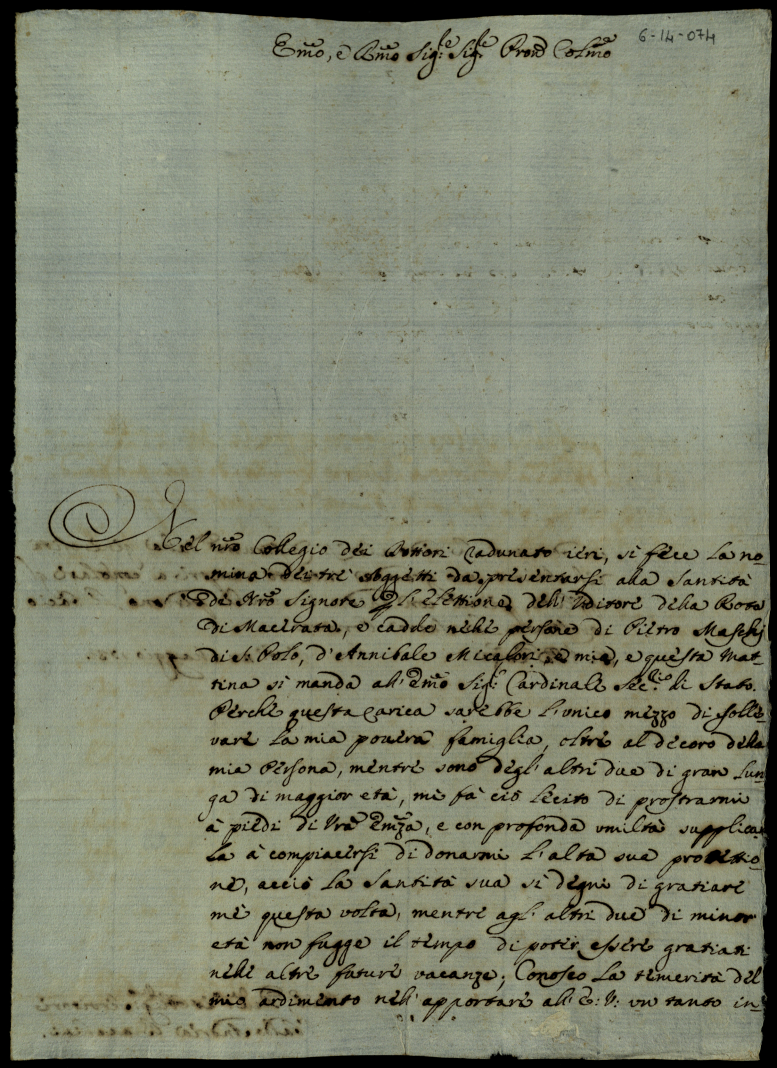 6-14-074
Emo, e Rmo Sig:re Sig:re Prone Colmo
Nel nro Collegio dei Dottori radunato ieri, si fece la no-
mina dei tre soggetti da presentarsi alla Santità
di Nro Signore per l'elettione dell'Uditore della Rota
di Macerata, e cadde nelle persone di Pietro Maschj
di S: Polo, d'Annibale Micalori, e mia, e questa mat-
tina si manda all'Emo Sig:r Cardinale Seg:rio di Stato.
Perche questa carica sarebbe l'vnico mezzo di solle-
vare la mia pouera famiglia, oltre al decoro della
mia Persona, mentre sono degl'altri due di gran lun-
ga di maggior età, mi fà ciò lecito di prostrarmi
à piedi di Vra Emza, e con profonda vmiltà supplicar-
la à compiacersi di donarmi l'alta sua protettio-
ne, acciò la Santità sua si degni di gratiare
me questa volta, mentre agl'altri due di minor
età non fugge il tempo di poter essere gratiati
nelle altre future vacanze; Conosco la temerità del
mio ardimento nell'apportare all'E: V: vn tanto in-